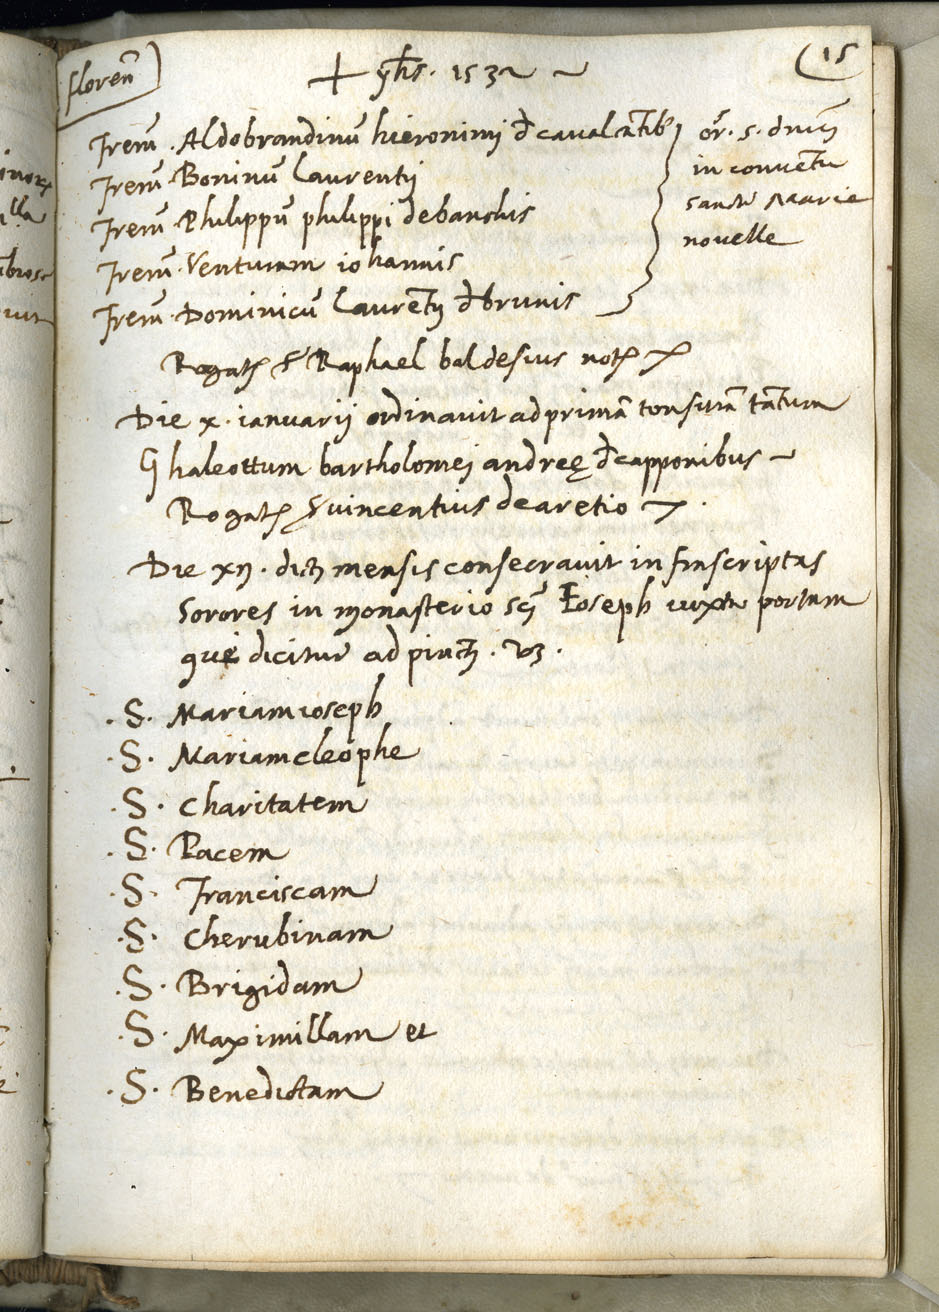 floreñ
15
+ yhs. 1532 ~
frem̃. Aldobrandinũ hieronimi d̃ cavalcãtib9
frem̃. Boninũ laurentij
frem̃. Philippũ philippi de banchis
frem̃. Venturam iohannis
frem̃. Dominicũ laurẽtij d̃ brunis
or̃. s. dñici
in conventu
sancte Marie
novelle
Rogatꝫ S Raphael baldesius notꝫ
Die x. ianuarij ordinavit ad primã tonsurã tãtum
Ghaleottum bartholomei andreę d̃ capponibus ~
Rogatꝫ S vincentius de aretio
Die xij. dicti mensis consecravit infrascriptas
Sorores in monasterio sc̃i Ioseph iuxta portam
que dicitur ad pinctj. vꝫ.
.S. Mariam ioseph
.S. Mariam cleophe
.S. Charitatem
.S. Pacem
.S. Franciscam
.S. Cherubinam
.S. Brigidam
.S. Maximillam et
.S. Benedictam